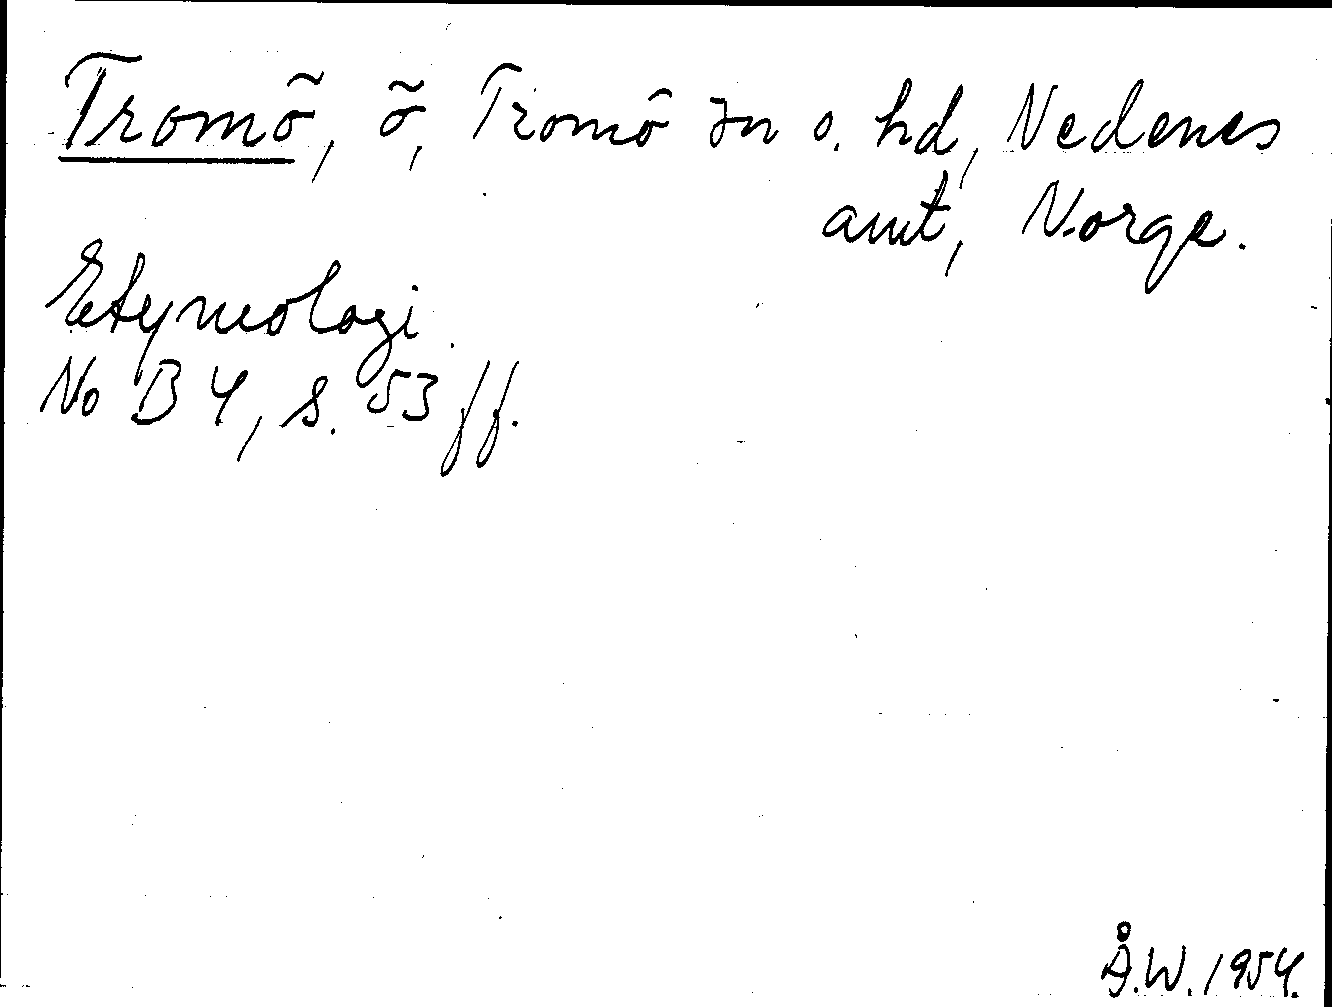 Tromö, ö, Tromö sn o. hd, Nedenes
amt, Norge.
Etymologi
No B 4, s. 53 ff.
Å.W. 1954.